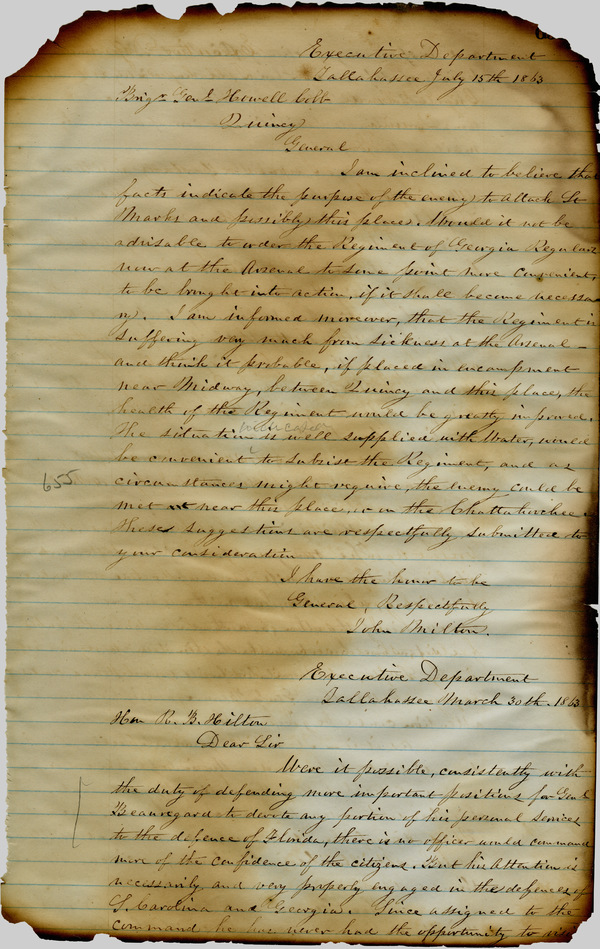 Executive Department
Tallahassee July 15th 1863
Brigr Genl Howell Cobb
Quincy
General
I am inclined to believe that
facts indicate the purpose of the enemy to attack St
Marks and possibly this place. Would it not be
advisable to order the Regiment of Georgia Regulars
now at the Arsenal to some point more convenient
to be brought into action, if it shall become necessa
ry. I am informed moreover, that the Regiment is
suffering very much from sickness at the Arsenal -
and think it probable, if placed in encampment
near Midway, between Quincy and this place, the
health of the Regiment would be greatly improved.
The situation is well supplied with water, would
be convenient to subsist the Regiment, and as
circumstances might require, the enemy could be
655
met near this place, or on the Chattahoochee.
These suggestions are respectfully submitted to
your consideration
I have the honor to be
General, Respectfully
John Milton.
Executive Department
Tallahassee March 30th. 1863
Hon R. B. Hilton
Dear Sir
Were it possible, consistently with
the duty of defending more important positions for Genl
Beauregard to devote any portion of his personal services
to the defence of Florida, there is no officer would command
more of the confidence of the citizens. But his attention is
necessarily and very properly engaged in the defences of
S. Carolina and Georgia. Since assigned to the
command he has never had the opportunity to visit